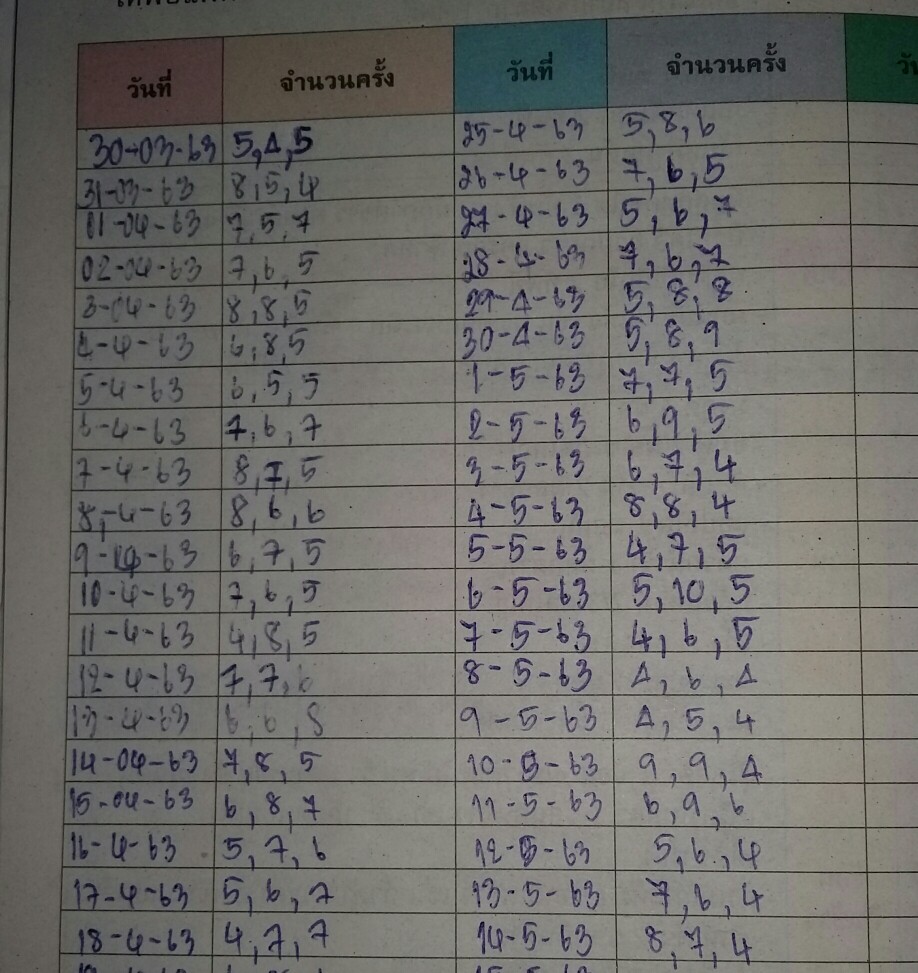 วันที่ จำนวนครั้ง วันที่ จำนวนครั้ง
30-03-63 5,4,5 25-4-63 5,8,6
31-03-63 8,5,4 26-4-63 7,6,5
01-04-63 7,5,7 27-4-63 5,6,7
02-04-63 7,6,5 28-4-63 7,6,7
3-04-63 8,8,5 29-4-63 5,8,8
4-4-63 6,8,5 30-4-63 5,8,9
5-4-63 6,5,5 1-5-63 7,7,5
6-4-63 7,6,7 2-5-63 6,9,5
7-4-63 8,7,5 3-5-63 6,7,4
8-4-63 8,6,6 4-5-63 8,8,4
9-4-63 6,7,5 5-5-63 4,7,5
10-4-63 7,6,5 6-5-63 5,10,5
11-4-63 4,8,5 7-5-63 4,6,5
12-4-63 7,7,6 8-5-63 4,6,4
13-4-63 6,6,8 9-5-63 4,5,4
14-04-63 7,8,5 10-5-63 9,9,4
15-04-63 6,8,7 11-5-63 6,9,6
16-4-63 5,7,6 12-5-63 5,6,4
17-4-63 5,6,7 13-5-63 7,6,4
18-4-63 4,7,7 14-5-63 8,7,4